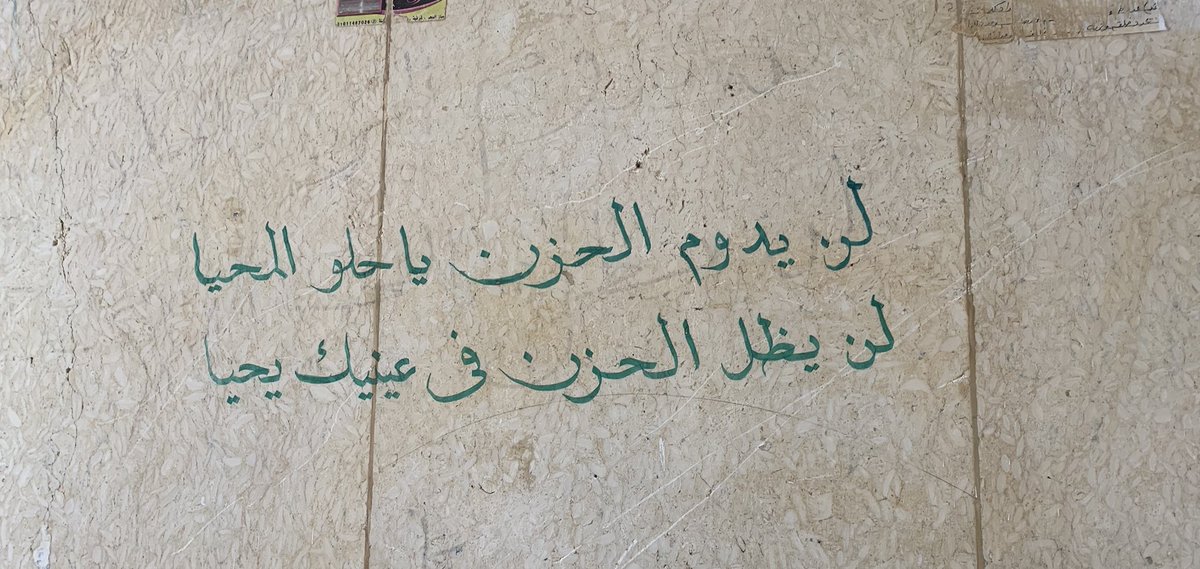 لن يدوم الحزن ياحلو المحيا
لن يظل الحزن فى عينيك يحيا